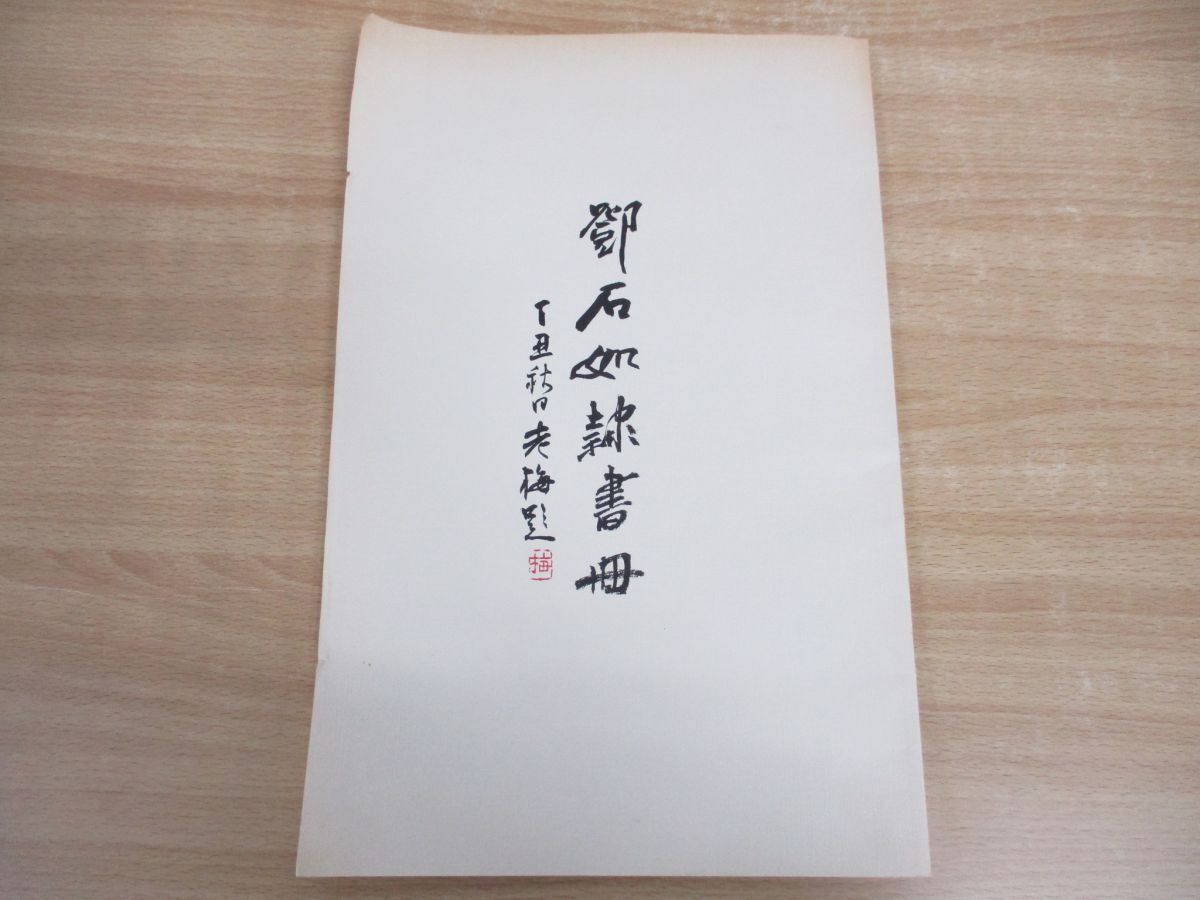 鄧石如隸書冊
丁丑秋日老梅題